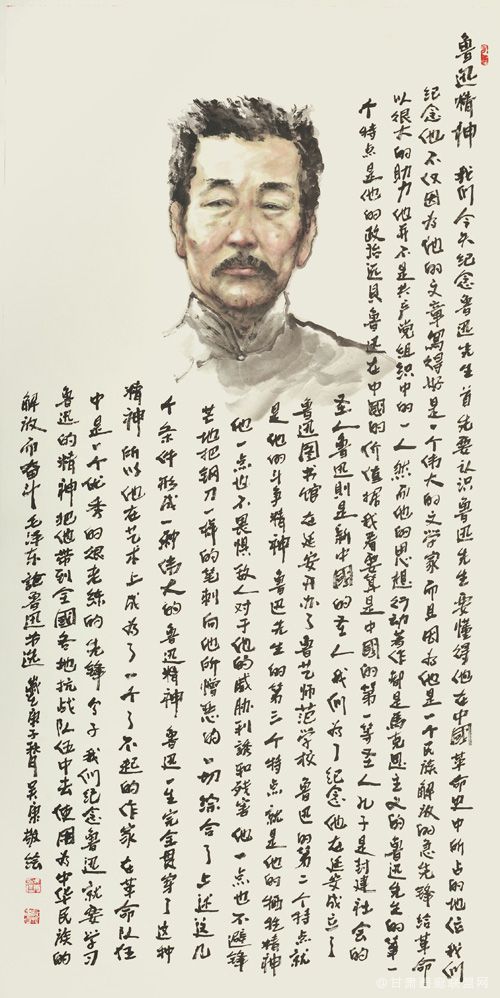 鲁迅精神 我们今天纪念鲁迅先生首先要认识鲁迅先生要懂得他在中國革命史中所占的地位我们
纪念他不仅因为他的文章寫得好是一个伟大的文学家而且因为他是一个民族解放的急先锋给革命
以很大的助力他并不是共产党组织中的一人然而他的思想行动著作都是馬克思主义的鲁迅先生的第一
个特点是他的政治远見鲁迅在中國的价值据我看要算是中国的第一等圣人孔子是封建社会的
圣人鲁迅則是新中國的圣人我们为了纪念他在延安成立了
鲁迅图书馆在延安开办了鲁艺师范学校鲁迅的第二个特点就
是他的斗争精神鲁迅先生的第三个特点就是他的牺牲精神
他一点也不畏惧敌人对于他的威胁利誘和残害他一点也不避锋
芒地把钢刀一样的笔刺向他所憎恶的一切综合了上述这几
个条件形成一种伟大的鲁迅精神鲁迅一生完全贯穿了这种
精神所以他在艺术上成为了一个了不起的作家在革命队伍
中是一个优秀的很老练的先锋分子我们纪念鲁迅就要学习
鲁迅的精神把他带到全國各地抗战队伍中去使用为中华民族的
解放而奋斗 毛泽东論鲁迅 庚子秋月 敬绘